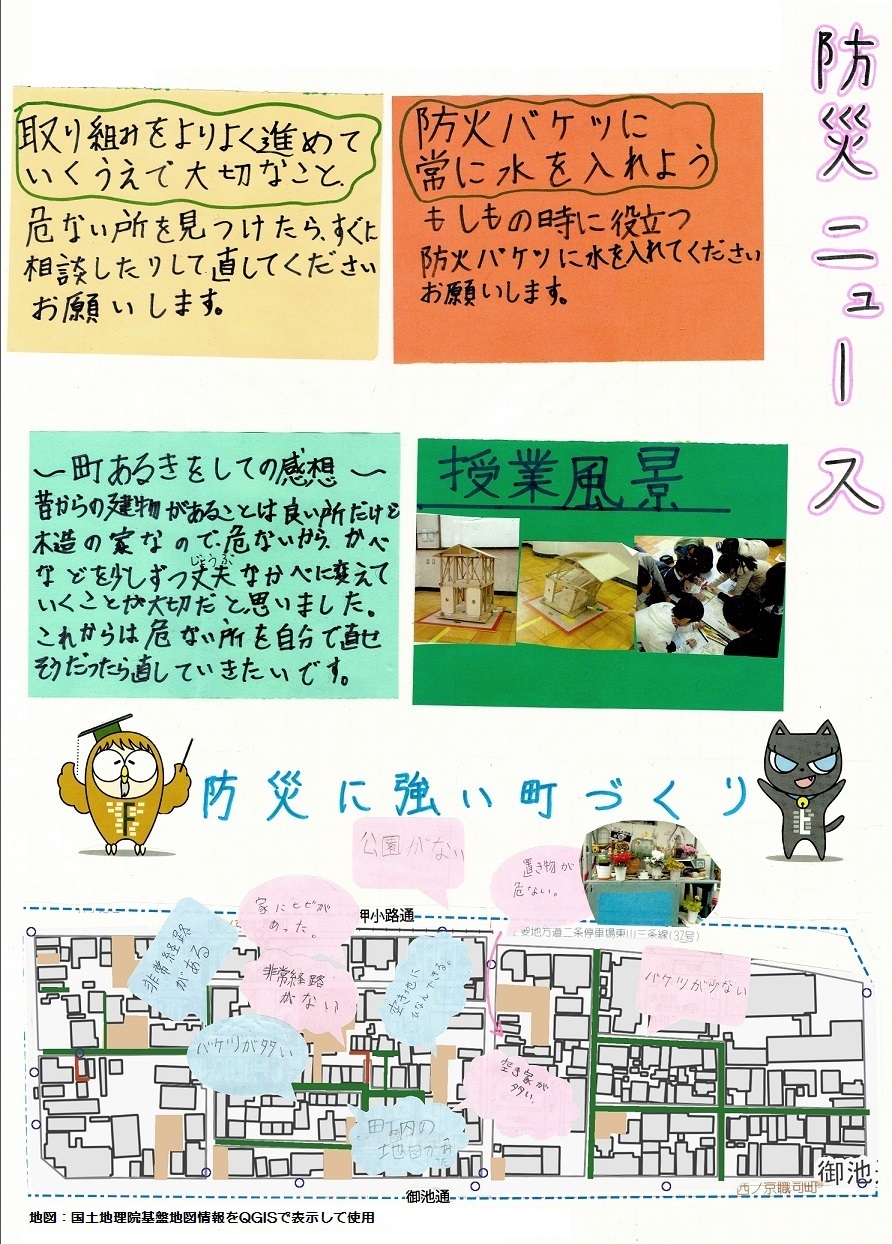 防災ニュース
防火バケツに
常に水を入れよう
もしもの時に役立つ
防火バケツに水を入れてください
お願いします。
取り組みをよりよく進めて
いくうえで大切なこと、
危ない所を見つけたら、すぐに
相談したりして直してください
お願いします。
〜町あるきをしての感想〜
昔からの建物があることは良い所だけど
木造の家なので、危ないから、かべ
などを少しずつ丈夫なかべに変えて
じょうぶ
いくことが大切だと、思いました。
これからは危ない所を自分で直せ
そうだったら直していきたいです。
授業風景
防災に強い町づくり
公園がない
置き物が
危ない。
家にヒビが
あった。
押小路通
主要地方道二条停車場東山三条線(37号)
非常経路
がある
非常経路
がない
空き地に
ひなんできる。
バケツが少ない
バケツが多い
空き家が
多い。
町内の
地図があった
御池通
西ノ京職司町
地図：国土地理院基盤地図情報をQGISで表示して使用